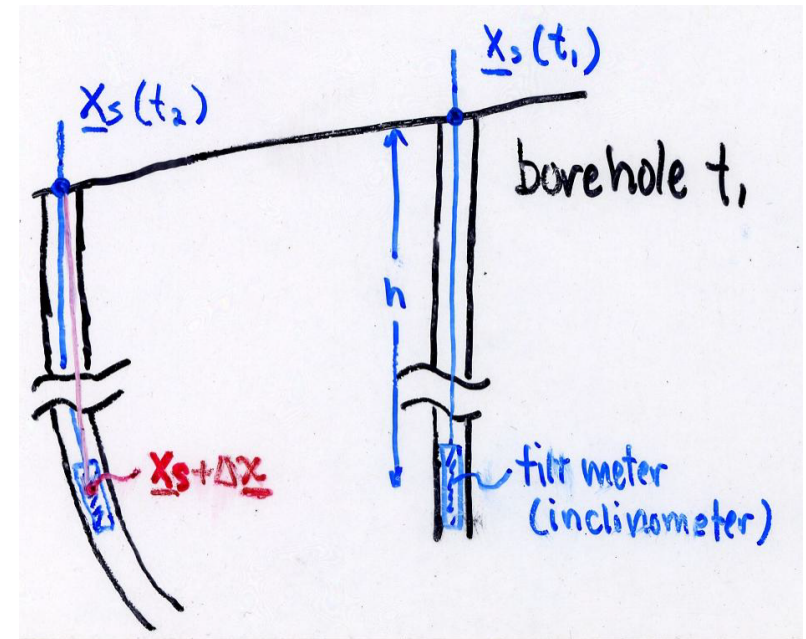 X̲s(t₁)
X̲s(t₂)
borehole t₁
h
X̲s+ΔX̲
tilt meter
(inclinometer)